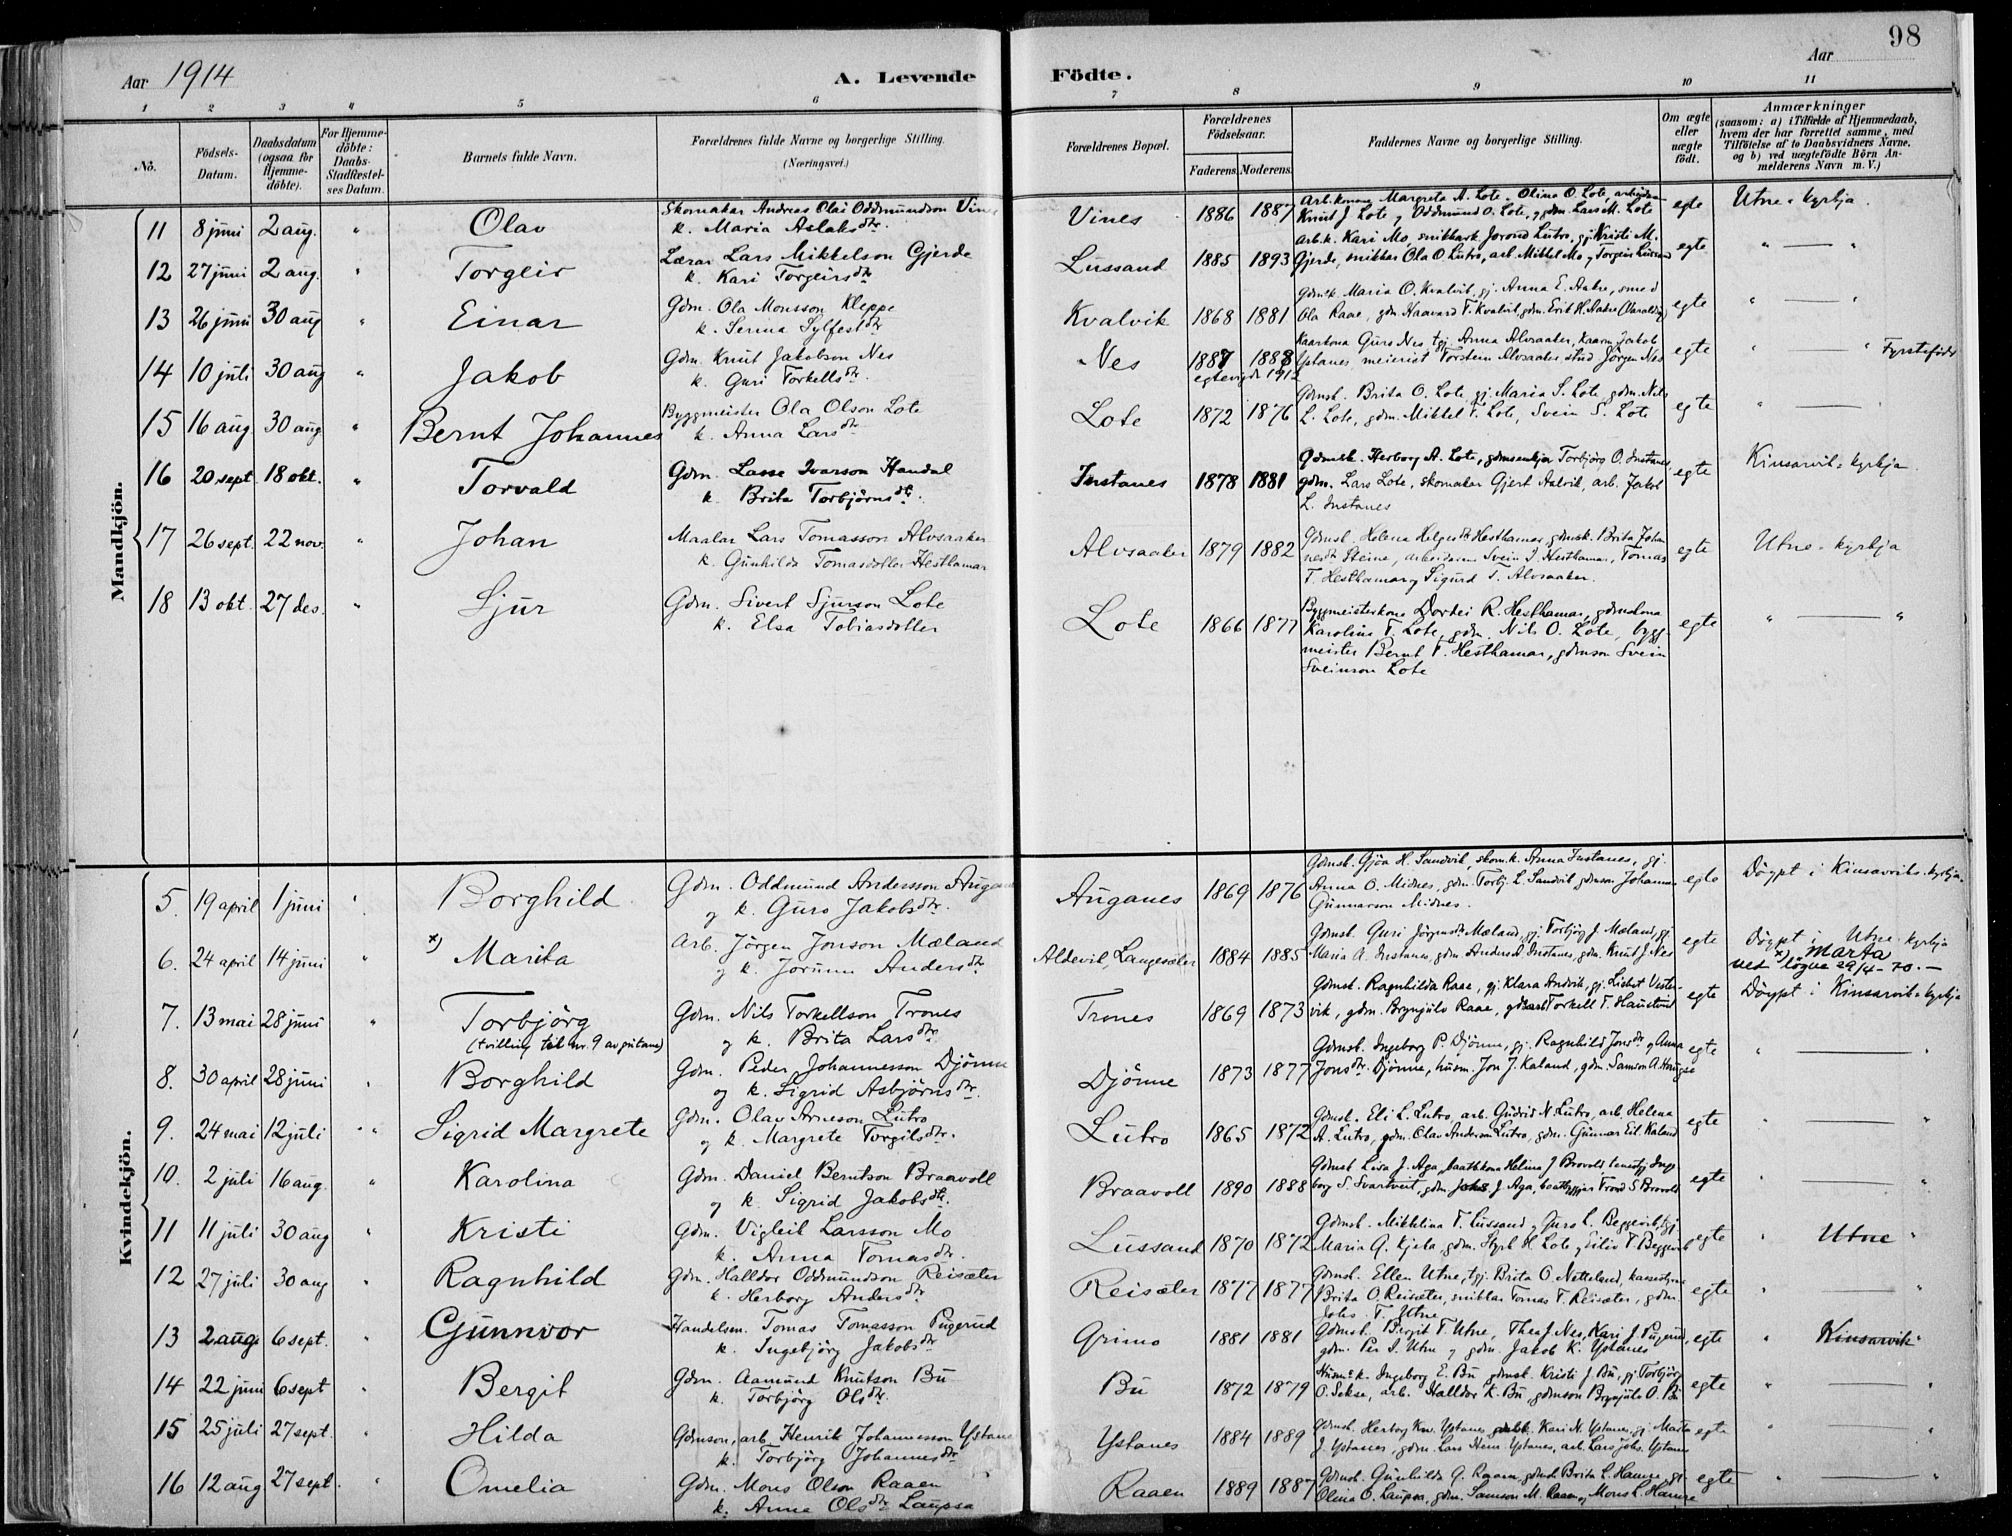 98
Aar 1914
A. Levende Födte.
Aar
1 2 3 4 5 6 7 8 9 10 11
No.
Födsels-Datum.
Daabsdatum (ogsaa for Hjemme-döbte).
For Hjemme-döbte: Daabs-Stadfæstel-ses Datum.
Barnets fulde Navn.
Forældrenes fulde Navne og borgerlige Stilling.
(Næringsvei.)
Forældrenes Bopæl.
Forældrenes Födselsaar.
Faderens. Moderens.
Faddernes Navne og borgerlige Stilling.
Om ægte eller uægte födt.
Anmærkninger
(saasom: a) i Tilfælde af Hjemmedaab, hvem der har forrettet samme, med Tilföielse af to Daabsvidners Navne. og b) ved uægtefödte Börn Anmelderens Navn m. V.)
Mandkjön.
11 8 juni 2 aug. " Olav
Skomakar Andreas Olai Oddmundson Vines
k. Maria Aslaksdtr.
Vines 1886 1887
Arb.kona Margreta A. Lote, Olina O. Lote, arbeidar
Knut J Lote y Oddmund O. Lote, y gdm. Lars M. Lote
egte Utne-kyrkja.
12 27 juni 2 aug. " Torgeir
Lærar Lars Mikkelson Gjerde
k. Kari Torgeirsdtr
Lussand 1885 1893
Arb.k. Kari Mo, snikkark. Jorond Lutro, gj. Kristi M.
Gjerde, snikkar Ola O Lutro, arb. Mikkel Mo y Torgeir Lussand
egte " — "
13 26 juni 30 aug " Einar
Gdm. Ola Monsson Kleppe
k. Serina Sylfestdtr
Kvalvik 1868 1881
Gdmsk. Maria O. Kvalvik, gj. Anna E. Aakre, smed
Ola Raae, gdm Haavard T. Kvalvik, gdm. Erik H. Aakre
egte " — "
14 10 juli 30 aug " Jakob
Gdm. Knut Jakobson Nes
k. Guri Torkellsdtr.
Nes 1887 1888
egtevigde 1912
Guro Nes, tgj. Anna Alvsaaker, Jakob
Ystanes, meierist Torstein Alvsaaker stud. Jörgen Nes
egte " — " Fyrstefödt
15 16 aug 30 aug " Bernt Johannes
Byggmeister Ola Olson Lote
k. Anna Larsdtr
Lote 1872 1876
Gdmsk. Brita O. Lote, gj. Maria S. Lote, gdm. Nils
L. Lote, gdm. Mikkel T. Lote, Svein S. Lote
egte " — "
16 20 sept 18 okt. " Torvald
Gdm. Lasse Ivarson Handal
k. Brita Torbjörnsdtr.
Instanes 1878 1881
Gdmsk. Herborg A. Lote, gdmsenkja Torbjörg O. Instanes,
gdm. Lars Lote, skomakar Gjert Aalvik, arb. Jakob
L. Instanes
egte Kinsarvik-kyrkja.
17 26 sept. 22 nov. " Johan
Maalar Lars Tomasson Alvsaaker
k. Gunhilda Tomasdotter Hesthamar
Alvsaaker 1879 1882
Gdmsk. Helena Helgesdtr Hesthamar, gdmsk. Brita Johan
nesdtr Steine, arbeidaren Svein J. Hesthamar, Tomas
T. Hesthamar y Sigurd T. Alvsaaker.
egte Utne-kyrkja
18 13 okt. 27 des. " Sjur
Gdm. Sivert Sjurson Lote
k. Elsa Tobiasdotter
Lote 1866 1877
Byggmeisterkona Dordei R. Hesthamar, gdmskona
Karolina T. Lote, gdm. Nils O. Lote, bygg-
meister Bernt T. Hesthamar, gdmson Svein
Sveinson Lote
egte " — "
Kvindekjön.
5. 19 april 1 juni " Borghild
Gdm. Oddmund Andersson Augan
y k. Guro Jakobsdtr.
Auganes 1869 1876
Gdmsk. Gjöa H. Sandvik, skom.k. Anna Instanes, gj.
Anna O. Midnes, gdm. Torbj. L. Sandvik gdmson Johannes
Gunnarson Midnes.
egte Döypt i Kinsarviks-kyrkja.
6. 24 april 14 juni " x) Marita
Arb. Jörgen Jonson Mæland
y k. Jorunn Andersdtr
Aldevik, Langesæter 1884 1885
Gdmsk. Guri Jörgensdtr Mæland, gj. Torbjörg J. Mæland, gj.
Maria A. Instanes, gdm. Anders A. Instanes, gdm. Knut J. Nes
egte Döypt i Utne-kyrkja
x) Marta
ved lögne 29/4-70.—
7. 13 mai 28 juni " Torbjörg
(tvilling til nr. 9 av gutane)
Gdm. Nils Torkellson Trones
y k. Brita Larsdtr
Trones 1869 1873
Gdmsk. Ragnhilda Raae, gj. Klara Andvik, gj. Lisbet Vester-
vik, gdm. Brynjulv Raae, Torkell T. Haustveit
egte Döypt i Kinsarvik-kyrkja
8. 30 april 28 juni " Borghild
Gdm. Peder Johannesson Djönne
og k. Sigrid Asbjörnsdtr.
Djönne 1873 1877
Gdmsk. Ingeborg P. Djönne, gj. Ragnhild Jonsdtr y Anna
Jonsdtr. Djönne, husm. Jon J. Kaland, gdm. Samson A.
egte " — "
9. 24 mai 12 juli " Sigrid Margrete
Gdm. Olav Arneson Lutro
y k. Margrete Torgilsdtr.
Lutro 1865 1872
Gdmsk. Eli L. Lutro, arb. Gudrid N. Lutro, arb. Helena
A. Lutro, gdm. Olav Anderson Lutro, gdm. Gunnar Eil. Kaland
egte " — "
10. 2 juli 16 aug. " Karolina
Gdm. Daniel Berntson Braavoll
y k. Sigrid Jakobsdtr.
Braavoll 1890 1888
Gdmsk. Lisa J. Aga, baatbkona Helina J Brovold tenestgj. Inge
borg S. Svartveit, gdm. Johs J Aga, baatbyggjar Trond S Brovold
egte " — "
11 11 juli 30 aug " Kristi
Gdm. Vigleik Larsson Mo
k. Anna Tomasdtr.
Lussand 1870 1872
Gdmsk. Mikkelina T. Lussand y Guro L. Beggevik, tgj.
Maria G. Kjerla, gdm. H. Lote y Eiliv T. Beggevik
egte " Utne "
12 27 juli 30 aug " Ragnhild
Gdm. Halldor Oddmundson Reisæter
k. Herborg Andersdtr
Reisæter 1877 1877
Gdmsk. Ellen Utne, tgj. Brita O. Netteland,
Brita O. Reisæter, snikkar Tomas T. Reisæter, gdm.
Johs. T. Utne
egte " — "
13 2 aug. 6 sept. " Gunnvor
Handelsm. Tomas Tomasson Pugerud
k. Ingebjörg Jakobsdtr
Grimo 1881 1881
Gdmsk. Bergit T. Utne, Thea J. Nes, Kari J. Pugerud,
gdm. Per S. Utne y gdm. Jakob K. Ystanes
egte " Kinsarvik "
14 22 juni 6 sept " Bergit
Gdm. Aamund Knutson Bu
k. Torbjörg Olsdtr.
Bu 1872 1879
Husm.k. Ingeborg E. Bu gdmsk. Kristi J. Bu, gj. Torbjörg
O. Sekse, arb. Halldor K. Bu, gdmson Brynjulv O. Bu
egte " — "
15 25 juli 27 sept. " Hilda
Gdmson, arb. Henrik Johannesson Ystane
k. Torbjörg Johannesdtr
Ystanes 1884 1889
Gdmsk. Herborg Kn. Ystanes, Kari N. Ystanes, gj. Marta
J. Ystanes, gdm. Lars Henr. Ystanes, arb. Lars Johs. Ystanes
egte " — "
16 12 aug 27 sept. " Omelia
Gdm. Mons Olson Raaen
k. Anna Olsdtr Laupsa
Raaen 1889 1887
Gdmsk. Gunhilda G. Raaen, gdmsk Brita L. Hamre, gj.
Olina O. Laupsa, gdm. Samson M. Raaen y Mons L. Hamre
egte " — "